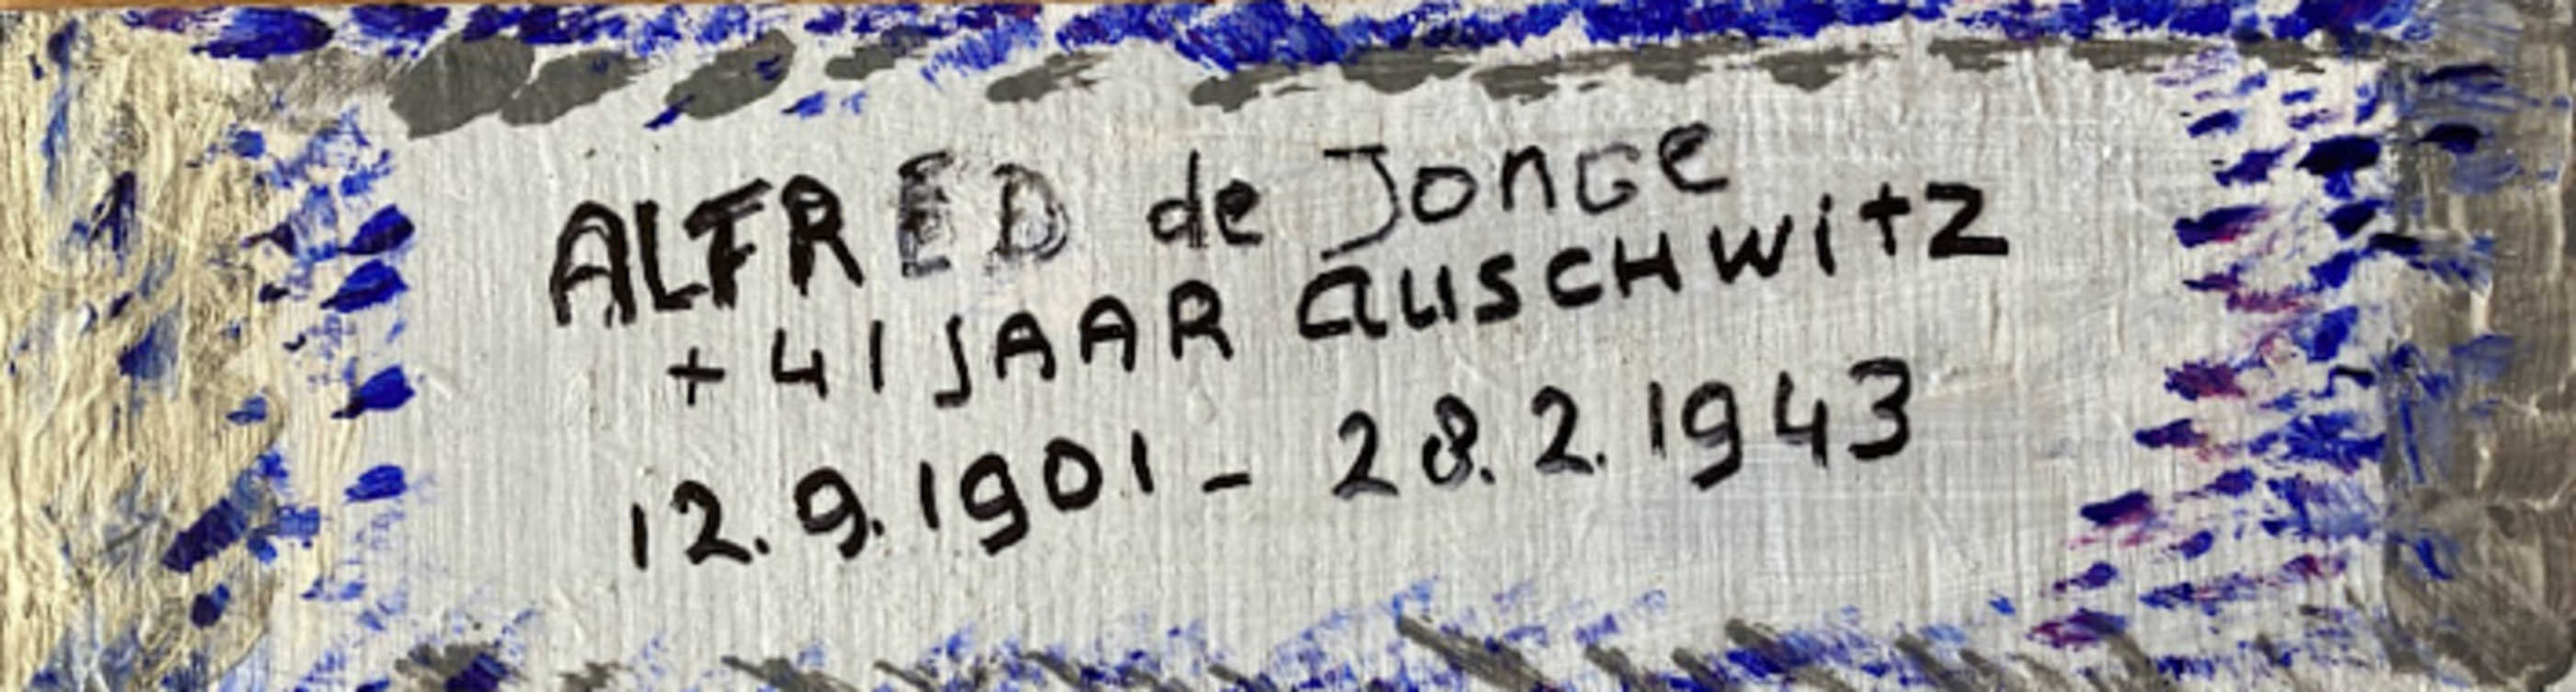 ALFRED de JonGe
+ 41 JAAR aUSCHWitZ
12.9.1901 - 28.2.1943